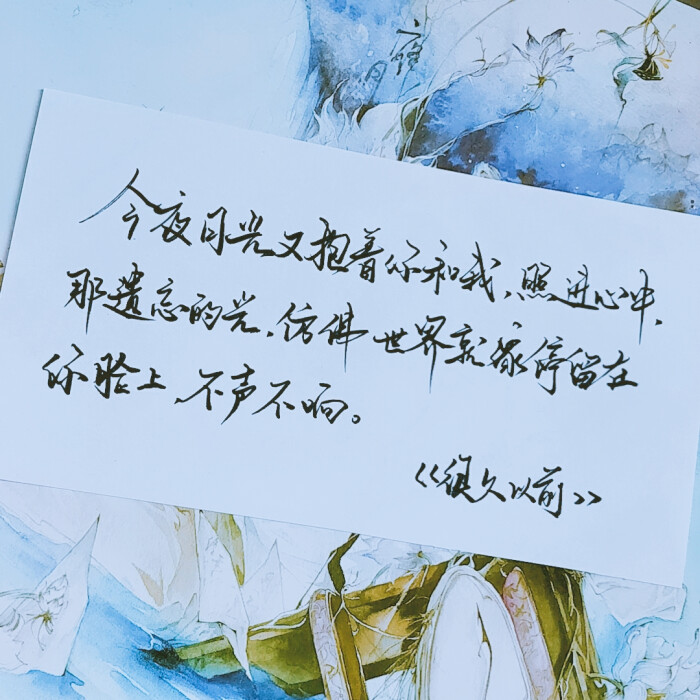 今夜月光又抱着你和我,照进心中,
那遗忘的光,仿佛世界就像停留在
你脸上,不声不响。
《很久以前》